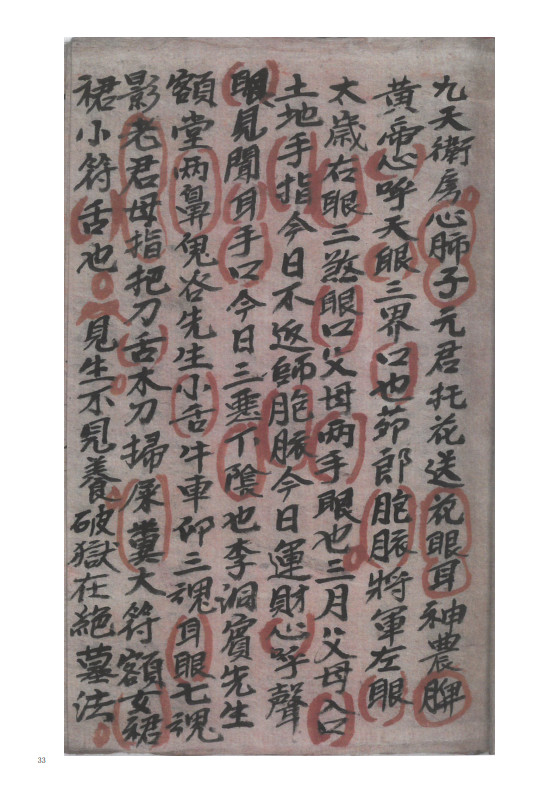 九天衛房心肺子元君托花送花眼耳神農脾
黃帝心呼天眼三界口也茆郎胞胀將軍左眼
太歲右眼三煞眼口父母两手眼也三月父母入口
土地手指今日不返師胞胀今日運財心呼聲
眼見聞耳手口今日三熏下陰也李洞賓先生
額堂两鼻傀咎先生小舌牛車仰三魂耳眼七魂
影老君母指把刀舌木刀掃屎糞大符額女裙
裙小符舌也
見生不見養破獄在絕墓法
33